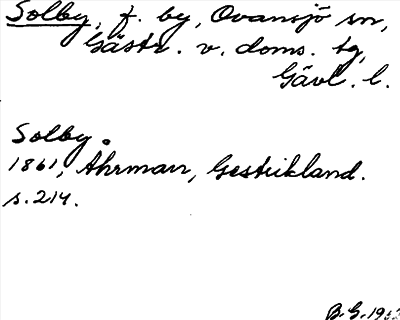 Solby, f. by, Ovansjö sn,
Gästr. v. doms. tg,
Gävl. l.
Solby.
1861, Åhrman, Gestrikland.
s. 214.
B. G. 19